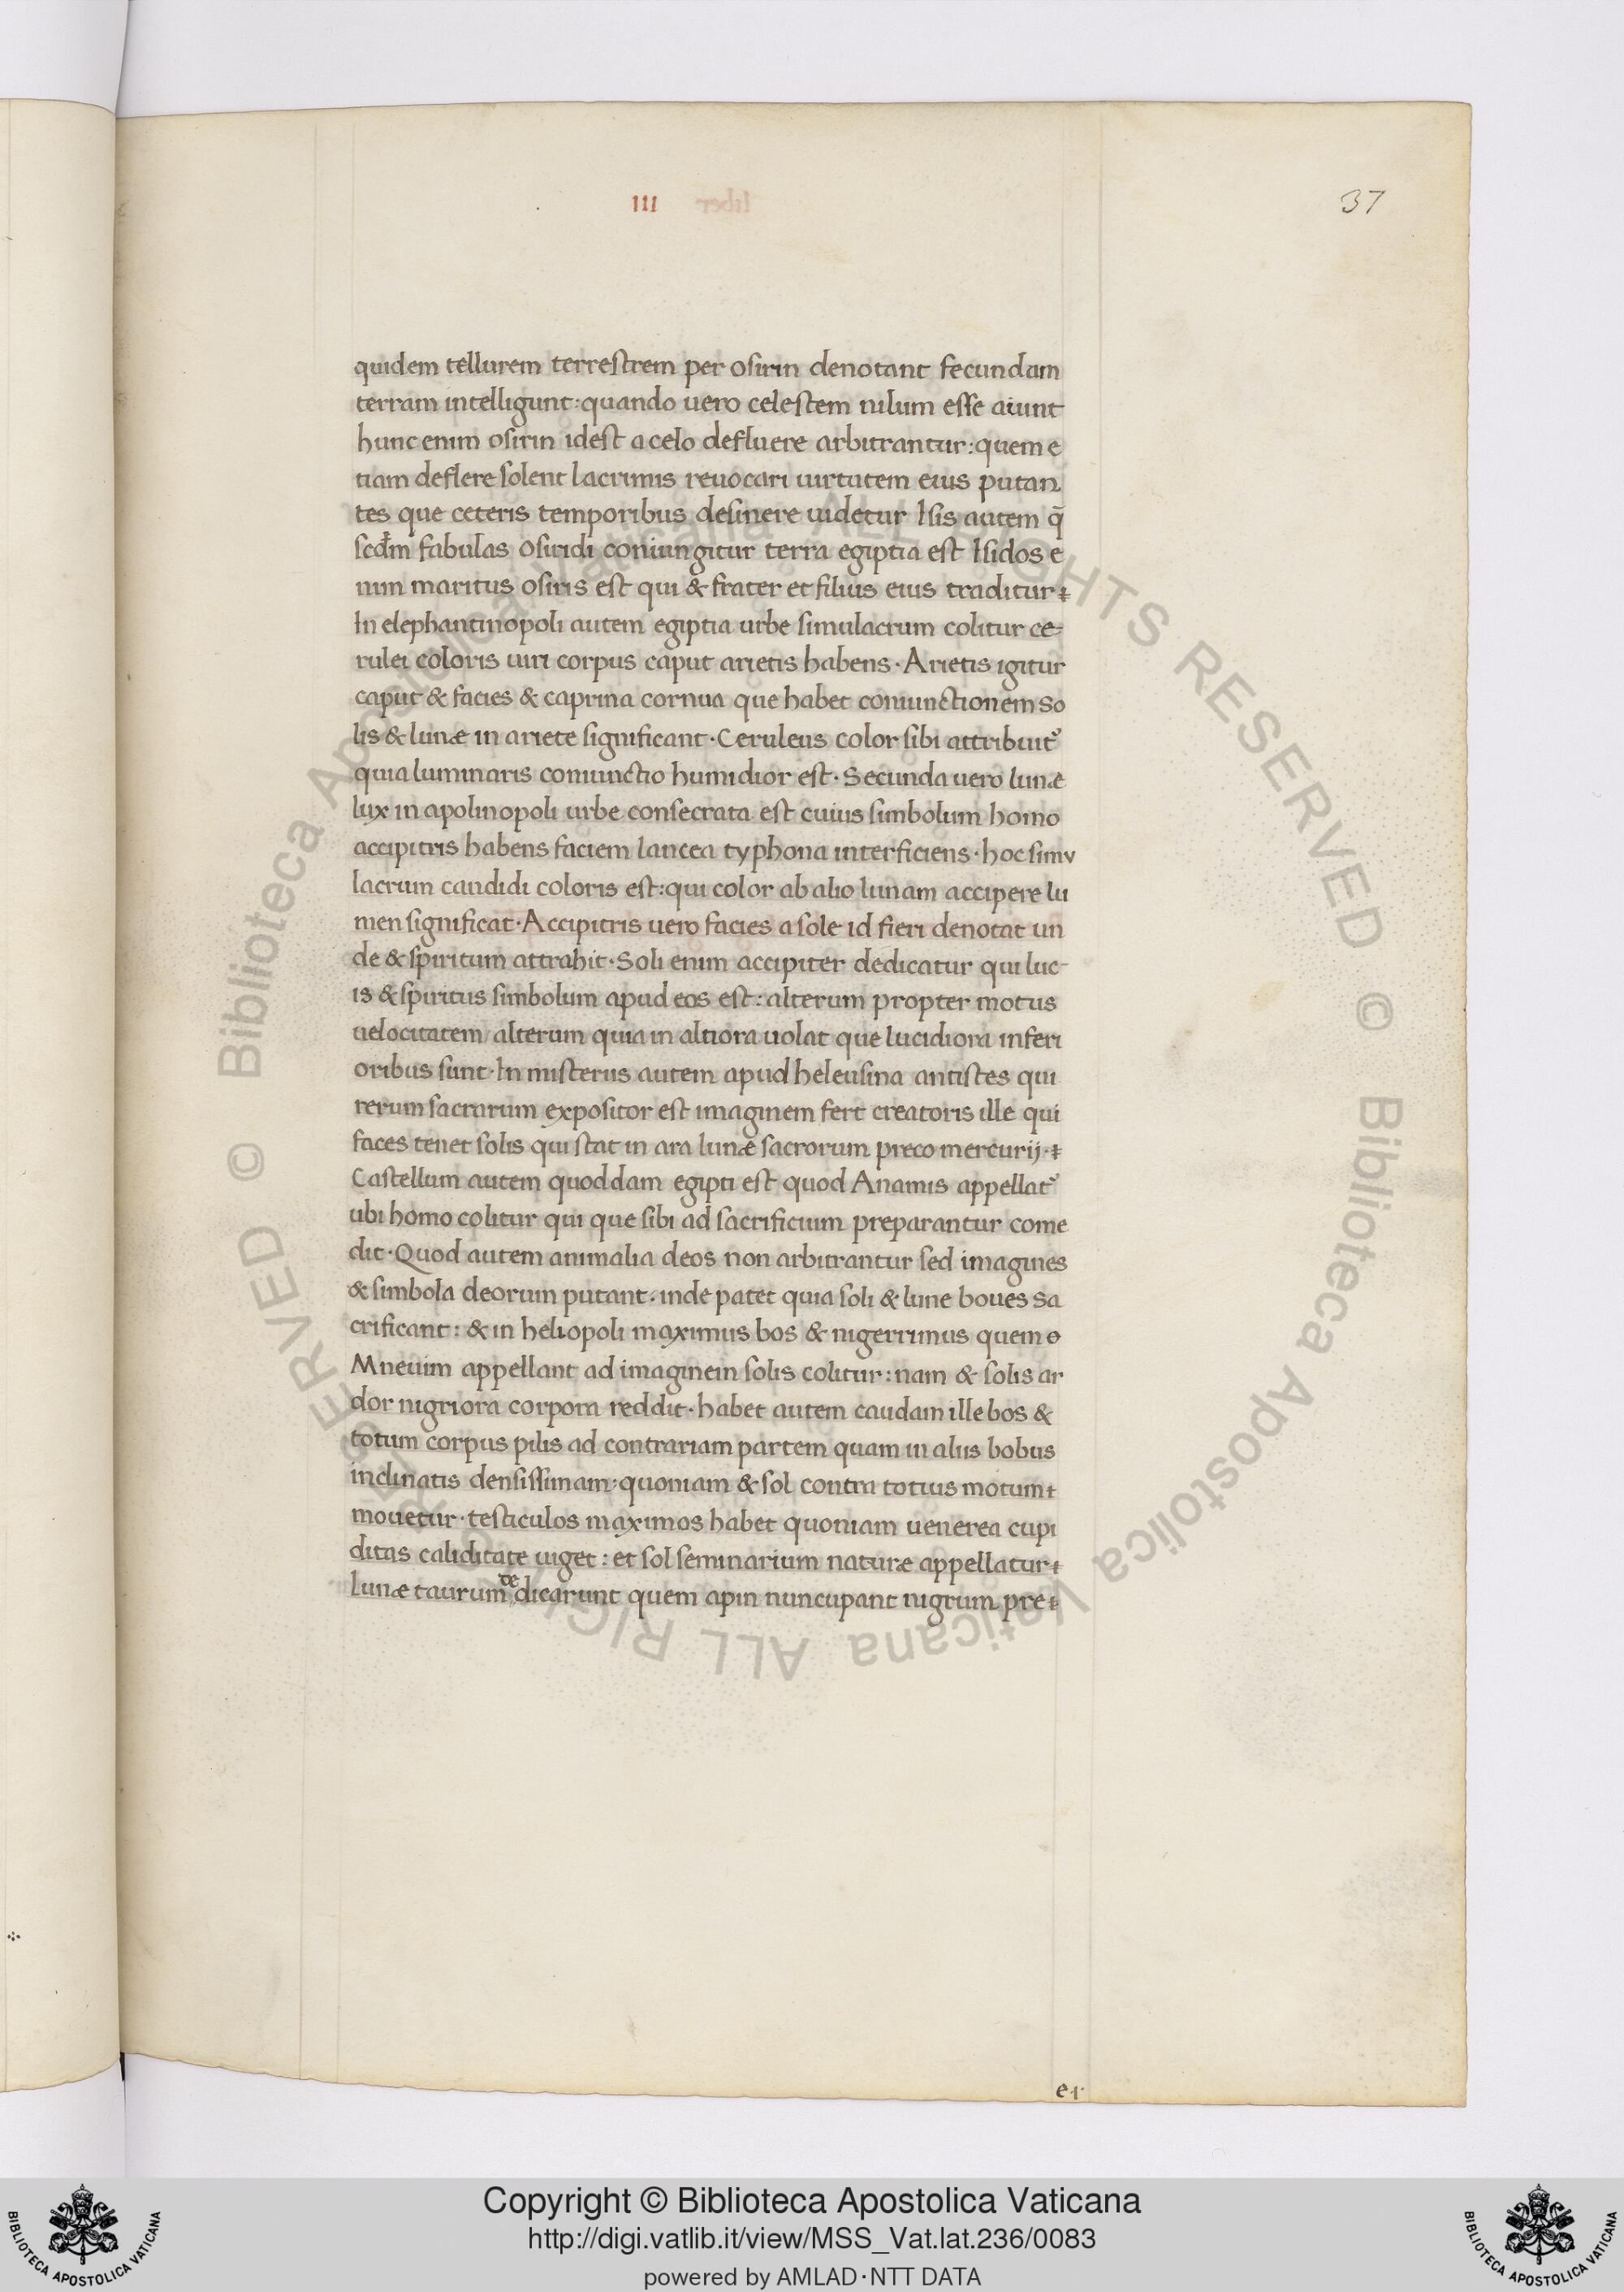 III
37
quidem tellurem terrestrem per osirin denotant fecundam
terram intelligunt: quando uero celestem nilum esse aiunt
hunc enim osirin idest a celo defluere arbitrantur: quem e
tiam deflere solent lacrimis reuocari uirtutem eius putan
tes que ceteris temporibus desinere uidetur Isis autem q̄
scđm fabulas osiridi coniungitur terra egiptia est Isidos e
nim maritus osiris est qui & frater et filius eius traditur
In elephantinopoli autem egiptia urbe simulacrum colitur ce-
rulei coloris uiri corpus caput arietis habens· Arietis igitur
caput & facies & caprina cornua que habet coniunctionem so
lis & lunæ in ariete significant· Ceruleus color sibi attribuit᾿
quia luminaris coniunctio humidior est· Secunda uero lunæ
lux in apolinopoli urbe consecrata est cuius simbolum homo
accipitris habens faciem lancea typhona interficiens· hoc simv
lacrum candidi coloris est: qui color ab alio lunam accipere lu
men significat· Accipitris uero facies a sole id fieri denotat un
de & spiritum attrahit· Soli enim accipiter dedicatur qui luc-
is & spiritus simbolum apud eos est: alterum propter motus
uelocitatem/ alterum quia in altiora uolat que lucidiora inferi
oribus sunt· In misteriis autem apud heleusina antistes qui
rerum sacrarum expositor est imaginem fert creatoris ille qui
faces tenet solis qui stat in ara lunæ sacrorum preco mercurij·
Castellum autem quoddam egipti est quod Anamis appellat᾿
ubi homo colitur qui que sibi ad sacrificium preparantur come
dit· Quod autem animalia deos non arbitrantur sed imagines
& simbola deorum putant· inde patet quia soli & lune boues sa
crificant: & in heliopoli maximus bos & nigerrimus quem
Mneuim appellant ad imaginem solis colitur: nam & solis ar
dor nigriora corpora reddit· habet autem caudam ille bos &
totum corpus pilis ad contrariam partem quam in aliis bobus
inclinatis densissimam: quoniam & sol contra totius motum
mouetur· testiculos maximos habet quoniam uenerea cupi
ditas caliditate uiget: et sol seminarium naturæ appellatur
Lunæ taurum dedicarunt quem apin nuncupant nigrum pre
e1·
© Biblioteca Apostolica Vaticana ALL RIGHTS RESERVED © Biblioteca Apostolica Vaticana ALL RIGHTS RESERVED
Copyright © Biblioteca Apostolica Vaticana
http://digi.vatlib.it/view/MSS_Vat.lat.236/0083
powered by AMLAD·NTT DATA
BIBLIOTECA APOSTOLICA VATICANA
BIBLIOTECA APOSTOLICA VATICANA